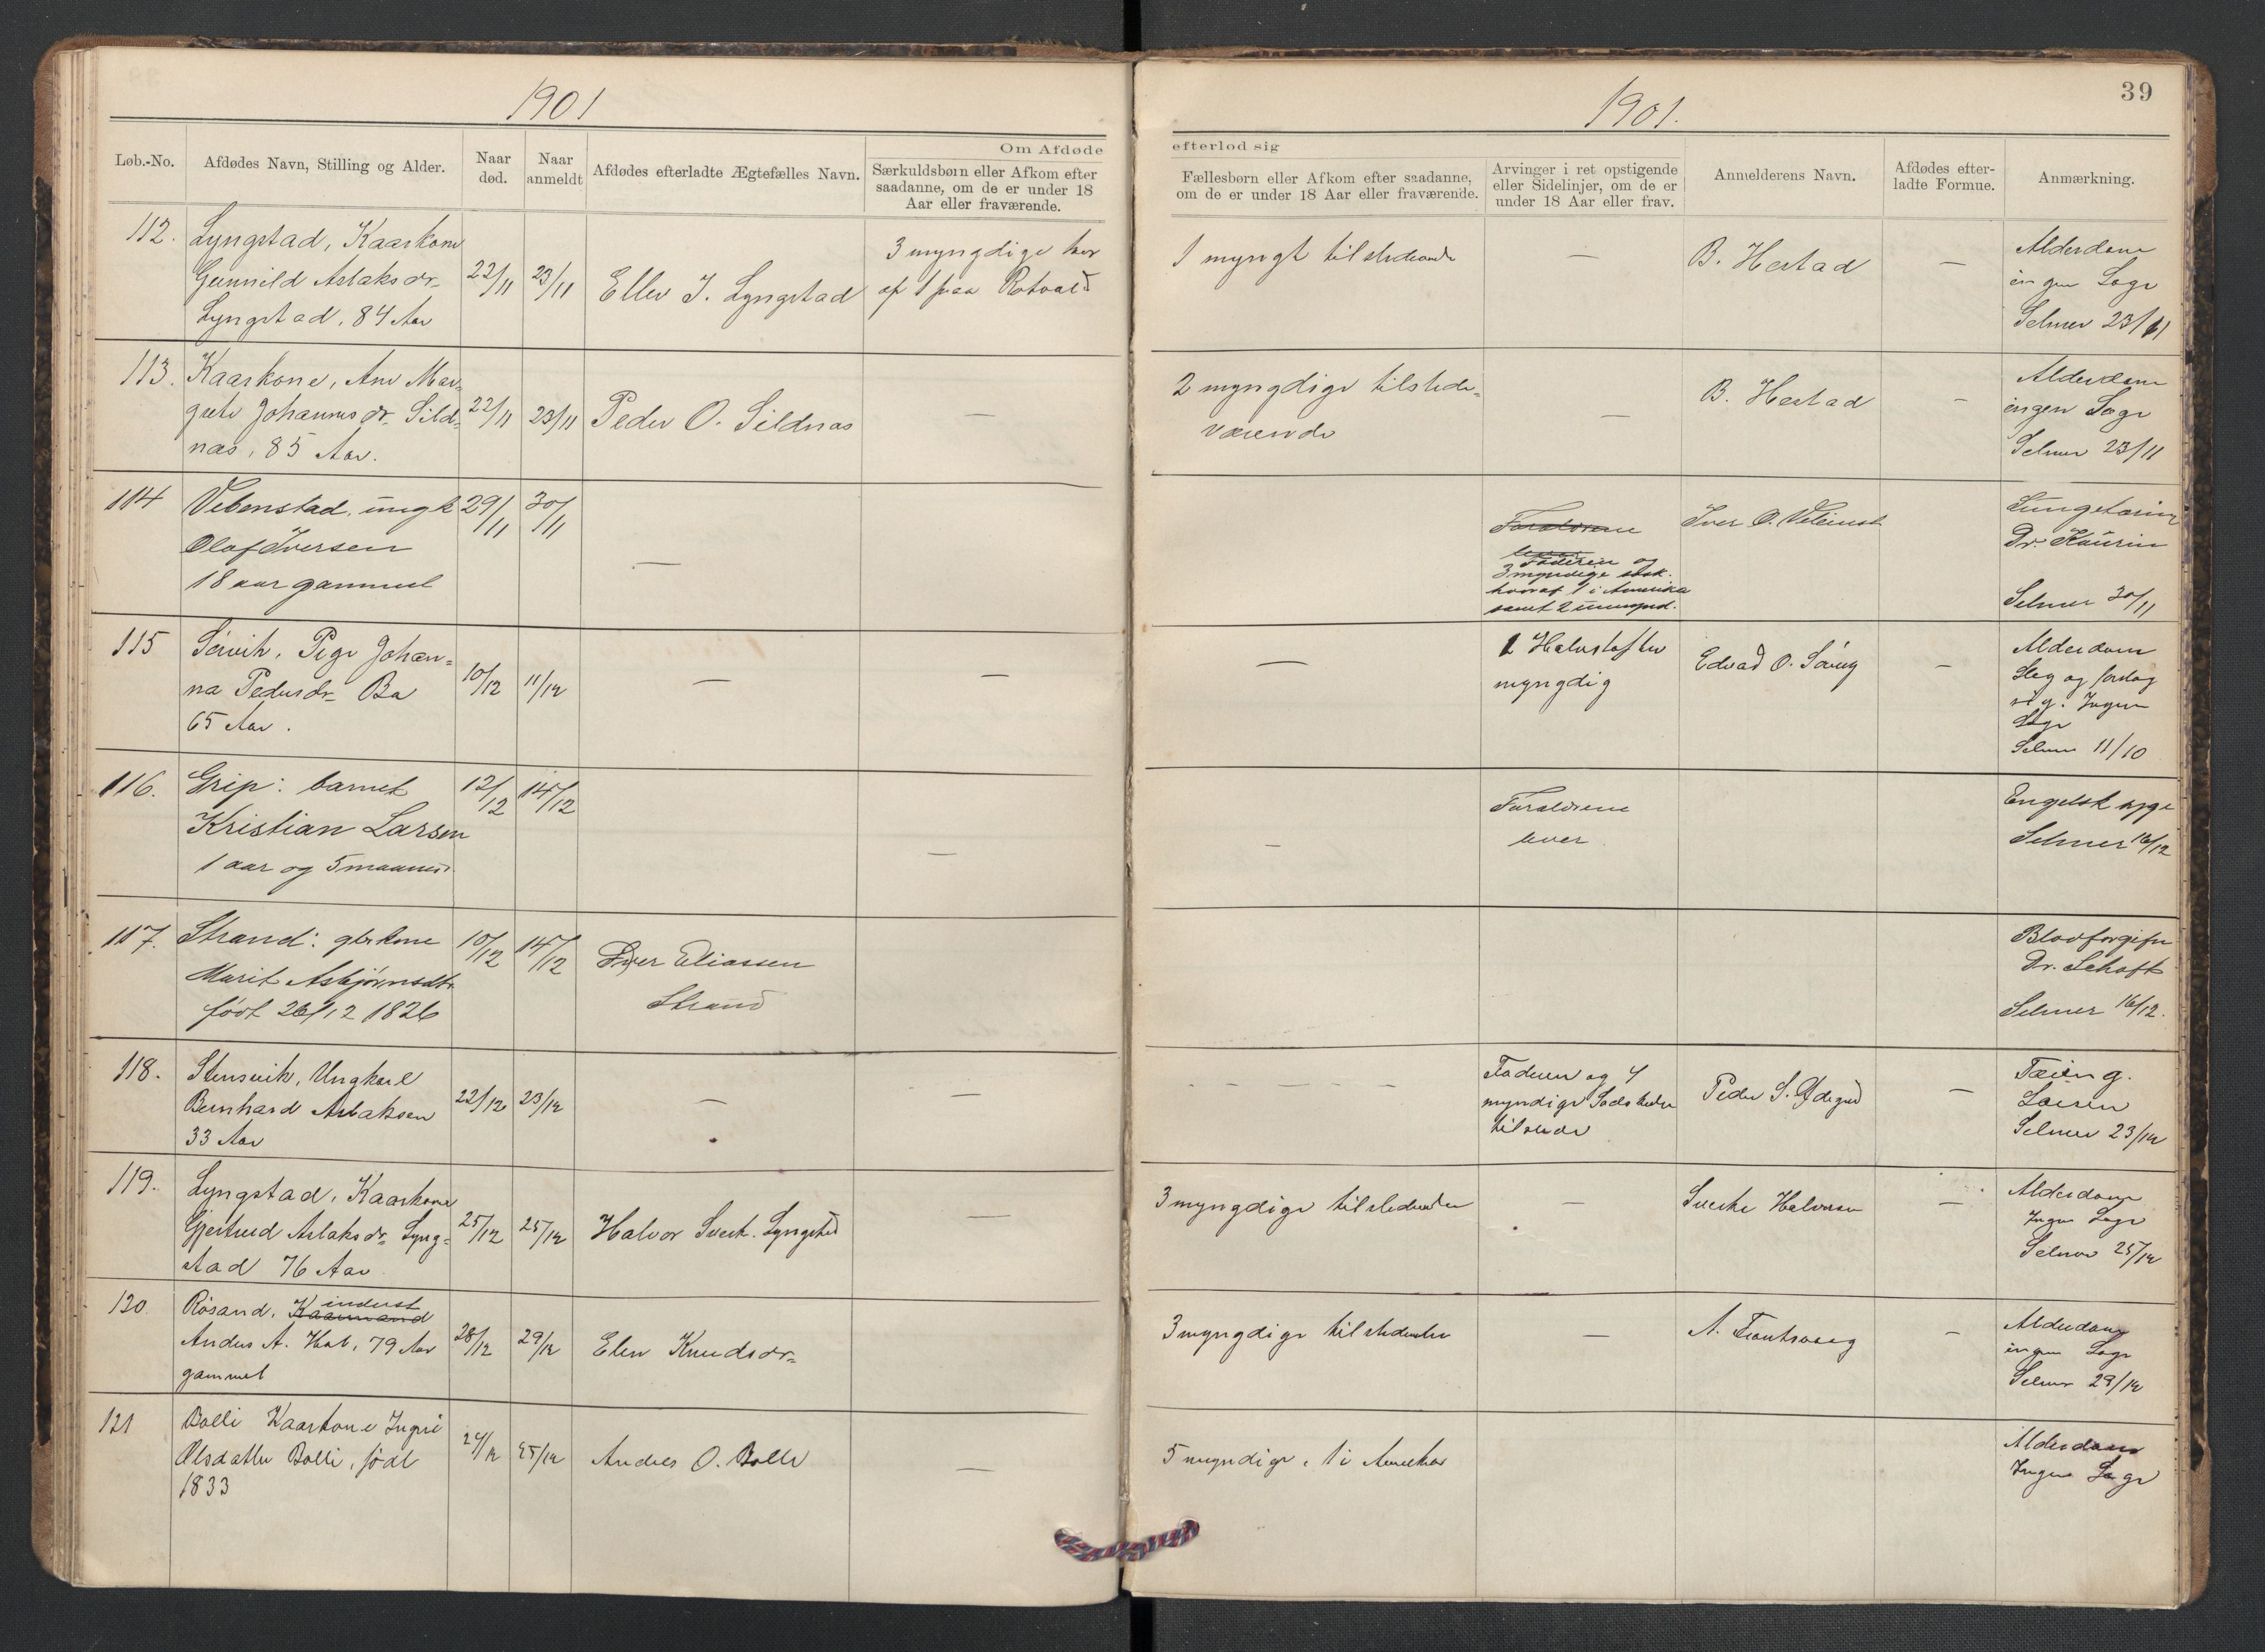 1901
Om Afdøde
Løb.-No.
Afdødes Navn, Stilling og Alder.
Naar død.
Naar anmeldt
Afdødes efterladte Ægtefælles Navn.
Særkuldsbørn eller Afkom efter
saadanne, om de er under 18
Aar eller fraværende.
112. Lyngstad, Kaarkone
Gunnild Aslaksdr
Lyngstad, 84 Aar
22/11 23/11
Ellev J. Lyngstad
3 myngdige hvor
af 1 paa Rotvold
113. Kaarkone, Ane Mar-
grete Johannesdr Sild-
nes, 85 Aar.
22/11 23/11
Peder O. Sildnes
—
114 Vebenstad, ungk
Olaf Iversen
18 aar gammel
29/11 30/11
—
115 Sørvik, Pige Johan-
na Pedersdr Bø
65 Aar.
10/12 11/12
—
—
116. Grip: barnet
Kristian Larsen
1 aar og 5 maaned
12/12 14/12
—
117. Strand: gbrkone
Marit Asbjørnsdtr
født 26/12 1826
10/12 14/12
Iver Eliassen
Strand
118. Stensvik, Ungkarl
Bernhard Aslaksen
33 Aar
22/12 23/12
—
—
119. Lyngstad, Kaarkone
Gjertrud Aslaksdr Lyng-
stad 76 Aar
25/12 25/12
Halvor Sverk. Lyngstad
—
120. Røsand, Kaarmand
inderst
Anders A. 79 Aar
gammel
28/12 29/12
Elen Knudsdr
121 Bolli Kaarkone Ingri
Olsdatter Bolli, født
1833
24/12 25/12
Anders O. Bolli
—
39
1901.
efterlod sig
Fællesbørn eller Afkom efter saadanne,
om de er under 18 Aar eller fraværende.
Arvinger i ret opstigende
eller Sidelinjer, om de er
under 18 Aar eller frav.
Anmelderens Navn.
Afdødes efter-
ladte Formue.
Anmærkning.
1 myngt tilstedeværende
—
B. Hestad
—
Alderdom
ingen Læge
Selmer 23/11
2 myngdige tilstede-
værende
—
B. Hestad
-
Alderdom
ingen Læge
Selmer 23/11
Forældrene
lever
Faderen og
3 myndige søsk.
hvoraf 1 i Amerika
samt 2 umynd.
Iver O.
Lungetæring
Dr. Kaurin
Selmer 30/11
—
1 Halvsøster
myngdig
Edvard O.
-
Alderdom
Slag og
Ingen
Læge
Selmer 11/10
-
Forældrene
lever
Engelsk syge
Selmer 16/12
Blodforgiftn
Dr.
Selmer 16/12.
- - - - -
Faderen og 4
myndige Sødskende
tilstede
Peder S. Ødegrd
—
Tæring.
Selmer 23/12
3 myngdige tilstedeværende
—
Sverke Halvorsen
—
Alderdom
Ingen Læge
Selmer 25/12
3 myngdige tilstedeværende
—
A.
-
Alderdom
ingen Læge
Selmer 29/12
5 myndige, 1 i Amerika
Alderdom
Ingen Læge